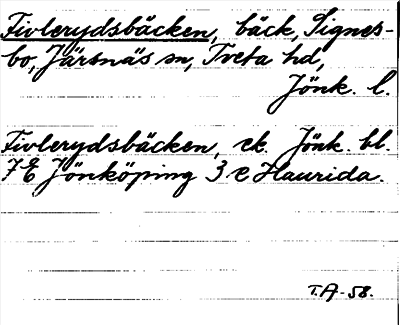 Fivlerydsbäcken, bäck, Signes-
bo, Järsnäs sn, Tveta hd,
Jönk. l.
Fivlerydsbäcken, ek. Jönk. bl.
7E Jönköping 3 e Haurida.
T.A-58.